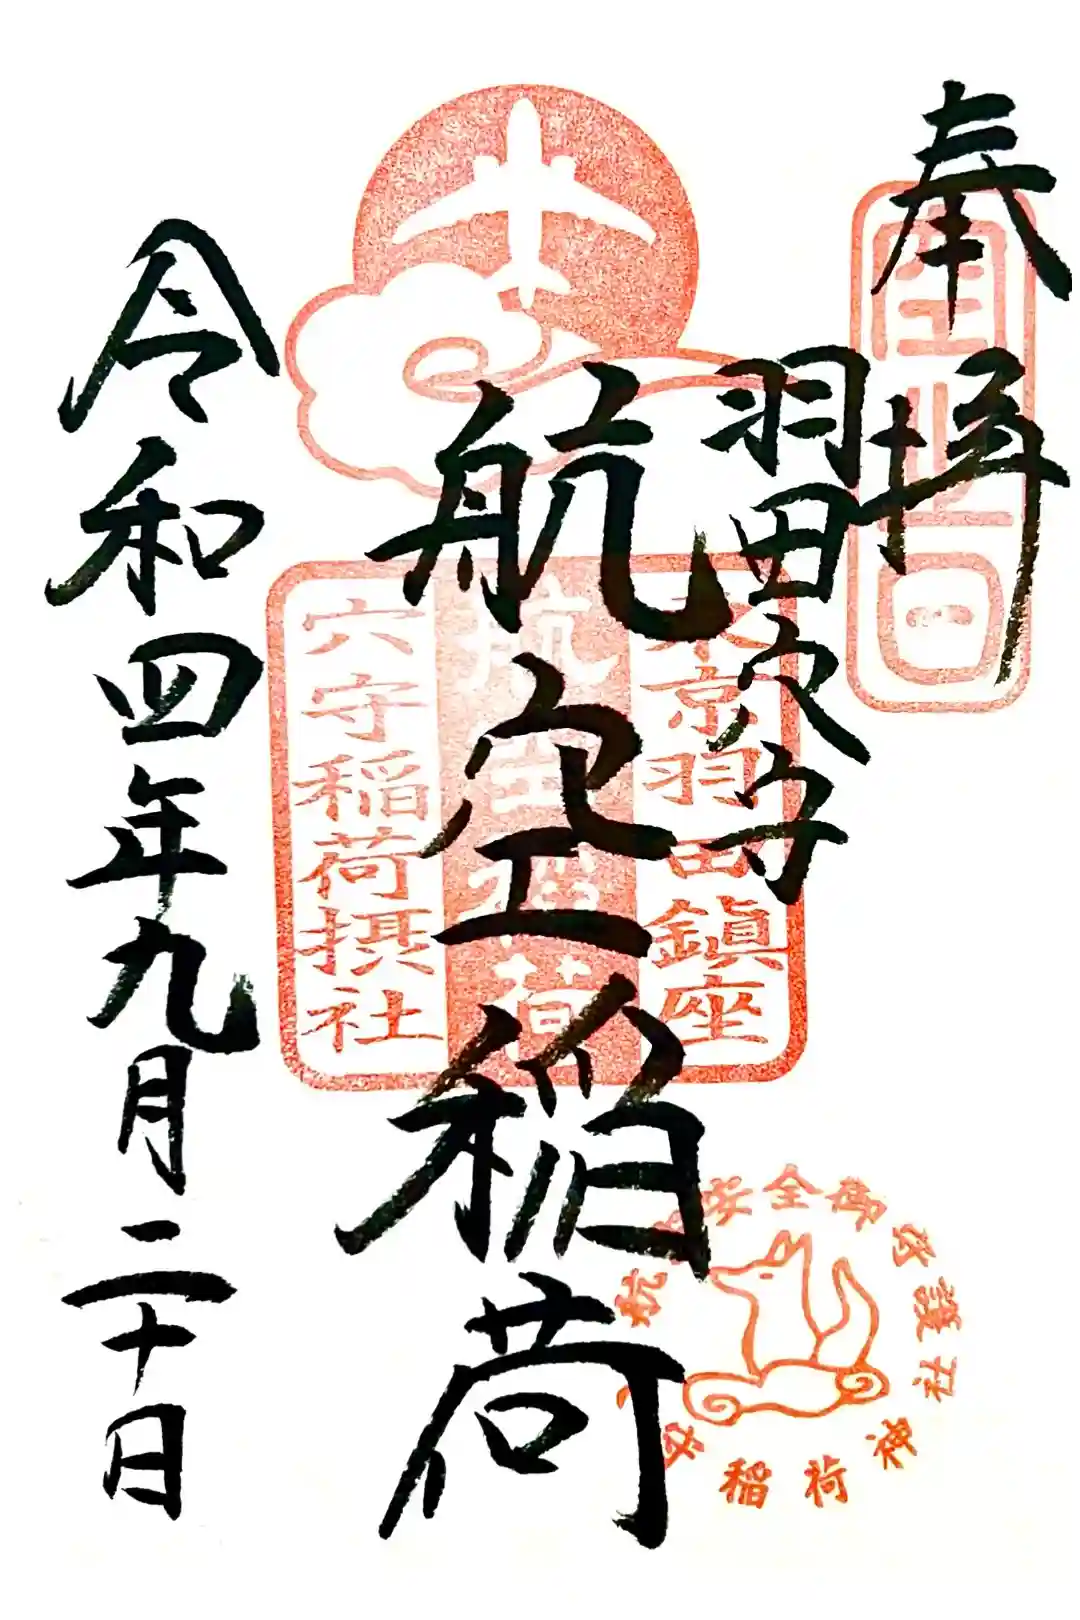 奉拝
羽田穴守
航空稲荷
令和四年九月二十日
東京羽田鎮座
航空稲荷
穴守稲荷摂社
安全御守護
稲荷神社